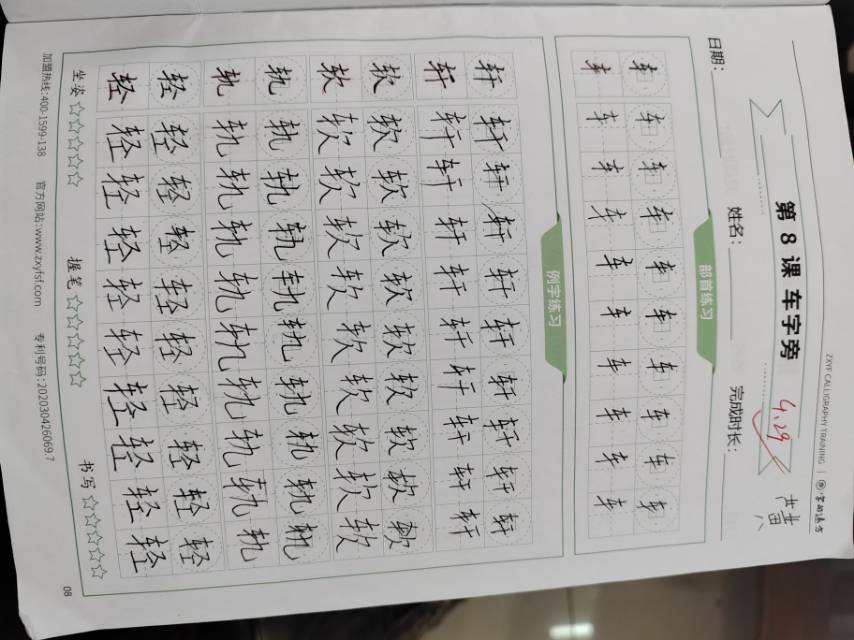 ZXYF CALLIGRAPHY TRAINING
第 8 课 车字旁 4.29
日期: 姓名: 完成时长:
部首练习
车 车 车 车 车 车 车 车 车 车
车 车 车 车 车 车 车 车 车 车
例字练习
轩 轩 轩 轩 轩 轩 轩 轩 轩 轩
轩 轩 轩 轩 轩 轩 轩 轩 轩 轩
软 软 软 软 软 软 软 软 软 软
软 软 软 软 软 软 软 软 软 软
轨 轨 轨 轨 轨 轨 轨 轨 轨 轨
轨 轨 轨 轨 轨 轨 轨 轨 轨 轨
轻 轻 轻 轻 轻 轻 轻 轻 轻 轻
轻 轻 轻 轻 轻 轻 轻 轻 轻 轻
坐姿 ☆☆☆☆☆ 握笔 ☆☆☆☆☆ 书写 ☆☆☆☆☆
08
加盟热线:400-1599-138 官方网站:www.zxyfsf.com 专利号码:202030426069.7